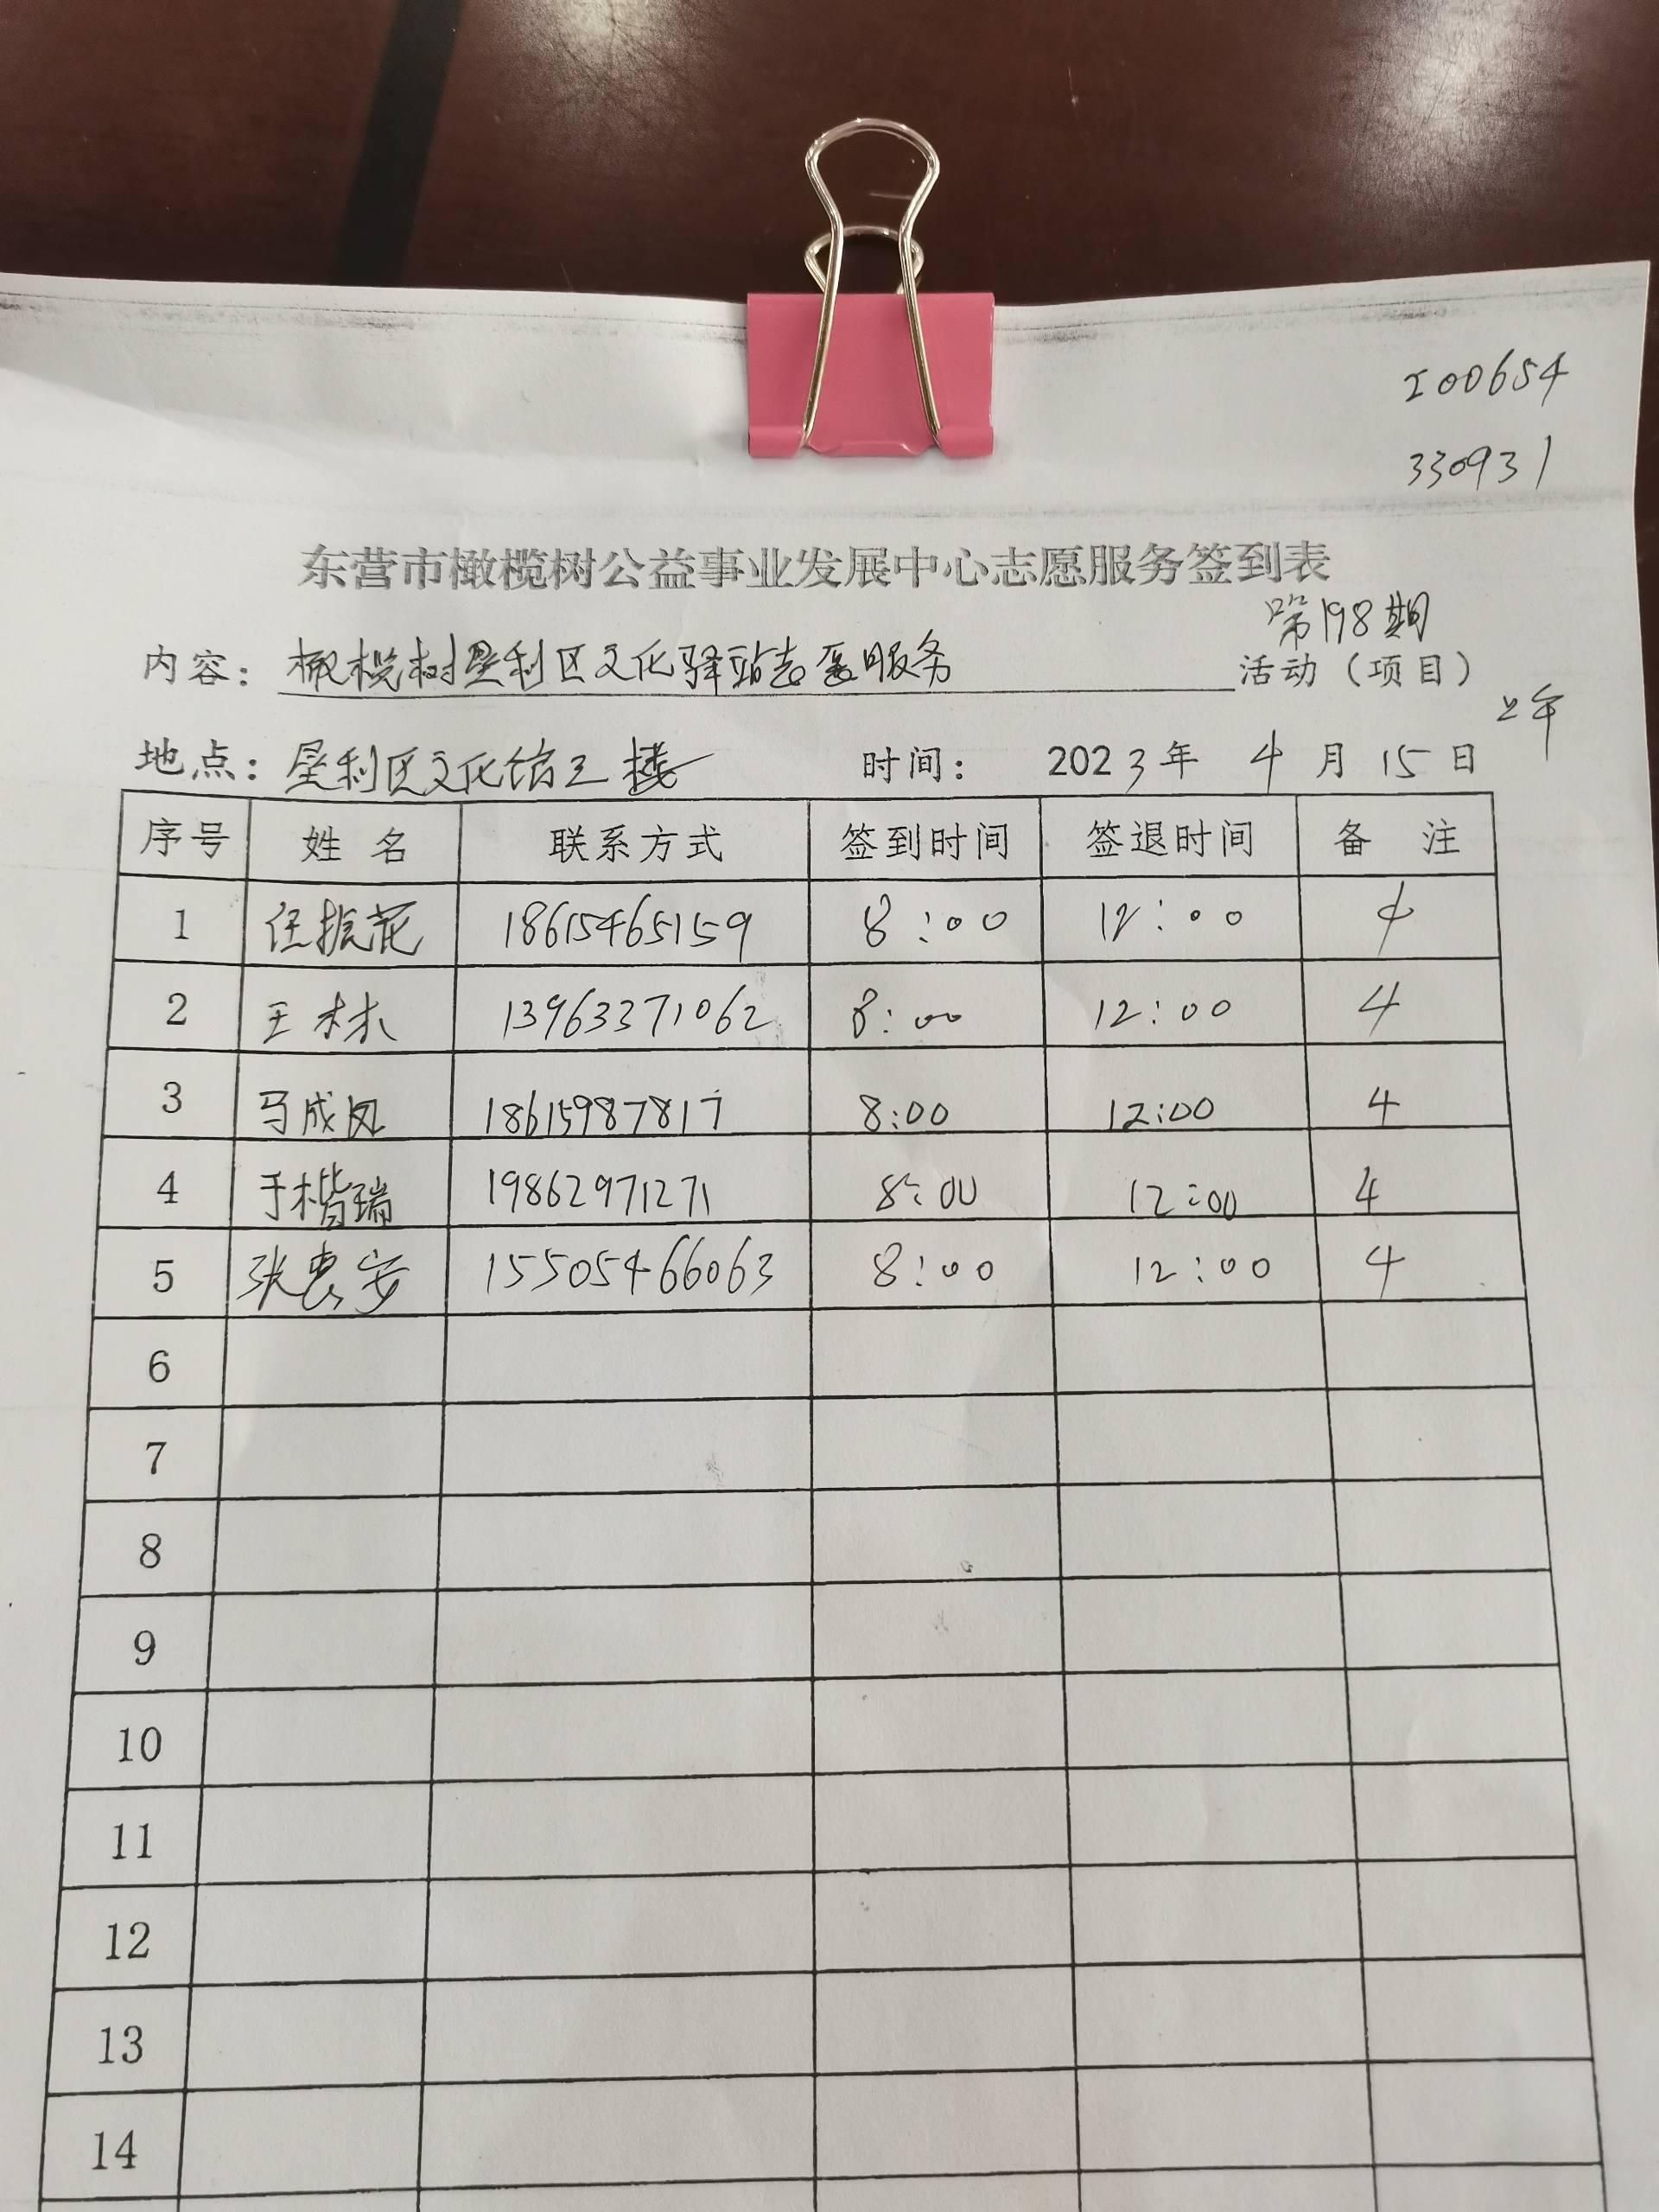 I00654
330931
东营市橄榄树公益事业发展中心志愿服务签到表
第198期
内容：橄榄树垦利区文化驿站志愿服务 活动（项目）
上午
地点：垦利区文化馆三楼 时间： 2023年 4月15日
序号 姓名 联系方式 签到时间 签退时间 备注
1 任振花 18615465159 8:00 12:00 4
2 王林 13963371062 8:00 12:00 4
3 马成凤 18615987817 8:00 12:00 4
4 于楷瑞 19862971271 8:00 12:00 4
5 张惠安 15505466063 8:00 12:00 4
6
7
8
9
10
11
12
13
14